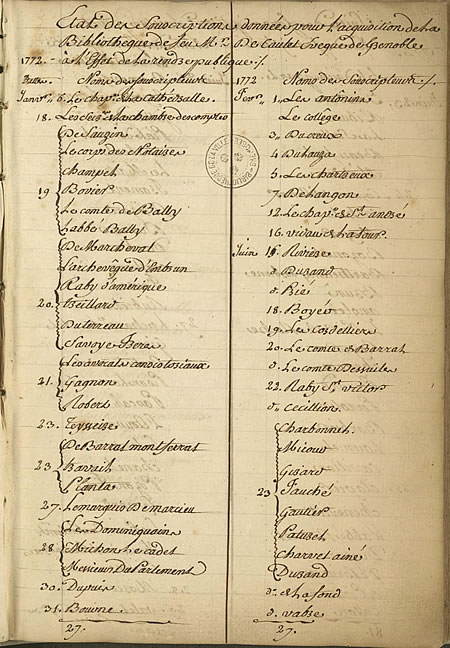 Etat des Souscriptions données pour l'acquisition de la
Bibliotheque de feu Mr. De Caulet Eveque de Grenoble
1772. à l'Effet de la rendre publique /.
Noms des souscripteurs
Janvr. 6. Le chap. de la cathédralle.
18. Les Srs. de la chambre des comptes
De Sauzin
Le corps des Notaires
Champel
19 Bovier
Le comte de Bally
L'abbé Bally
De Marcheval
L'archevêque d'Embrun
Raby d'amérique
20. Beillard
Duterreau
Savoye
Les avocats consistoriaux
21. Gagnon
Robert
23. Teysseire
De Barral montferrat
23 Barrail
Planta
27. Le marquis De marcieu
Les Dominiquains
28 Michon Le cadet
Messieurs Du Parlement
30. Dupuis
31. Bowne.
27.
1772 Noms des souscripteurs /.
Fevr. 1. Les antonins
Le collège
3. Ducreux
4 Duhauza
5. Les chartreux
7. De Langon
12. Le chap. de St. andré
16. vivan de La tour.
Juin 16. Riviere
d. Durand
d. Bié
18. Boyer
19. Les cordelliers
20. Le comte de Barral
d. Le comte
22. Raby St. victor
d. Cecillion
Charbonnel
Micoud
Girard
23 Fauché
Gautier
Patural
Charvet ainé
Durand
d. de Lafond
d. valsre
27.